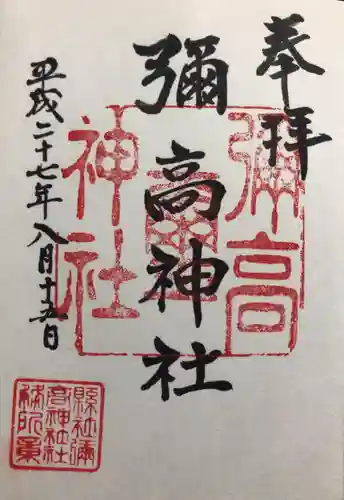 奉拝
彌高神社
平成二十七年八月十五日
彌高
神社
縣社彌
高神社社
務所印